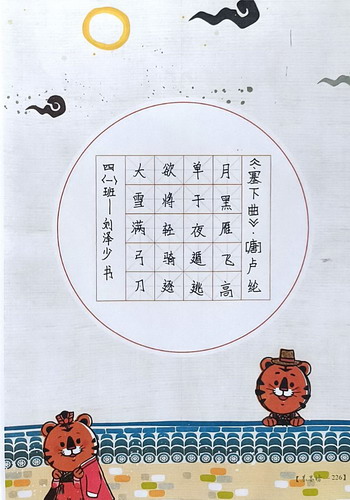 《塞下曲》·[唐]卢纶
月黑雁飞高
单于夜遁逃
欲将轻骑逐
大雪满弓刀
四(一)班—刘泽少书
226